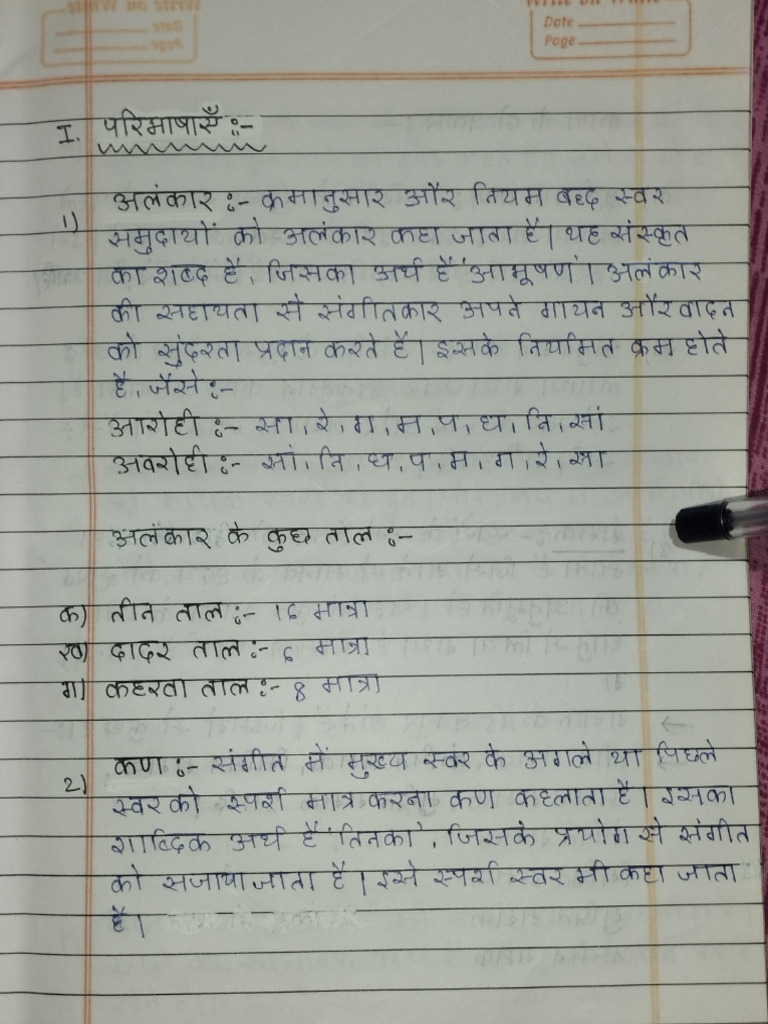 Date
Page
I. परिभाषाएँ :-
1) अलंकार :- क्रमानुसार और नियम बद्ध स्वर
समुदायों को अलंकार कहा जाता है। यह संस्कृत
का शब्द है, जिसका अर्थ है 'आभूषण'। अलंकार
की सहायता से संगीतकार अपने गायन और वादन
को सुंदरता प्रदान करते है। इसके नियमित क्रम होते
है, जैसे :-
आरोही :- सा, रे, ग, म, प, ध, नि, सां
अवरोही :- सां, नि, ध, प, म, ग, रे, सा
अलंकार के कुछ ताल :-
क) तीन ताल :- 16 मात्रा
ख) दादर ताल :- 6 मात्रा
ग) कहरवा ताल :- 8 मात्रा
2) कण :- संगीत में मुख्य स्वर के अगले या पिछले
स्वर को स्पर्श मात्र करना कण कहलाता है। इसका
शाब्दिक अर्थ है 'तिनका', जिसके प्रयोग से संगीत
को सजाया जाता है। इसे स्पर्श स्वर भी कहा जाता
है।